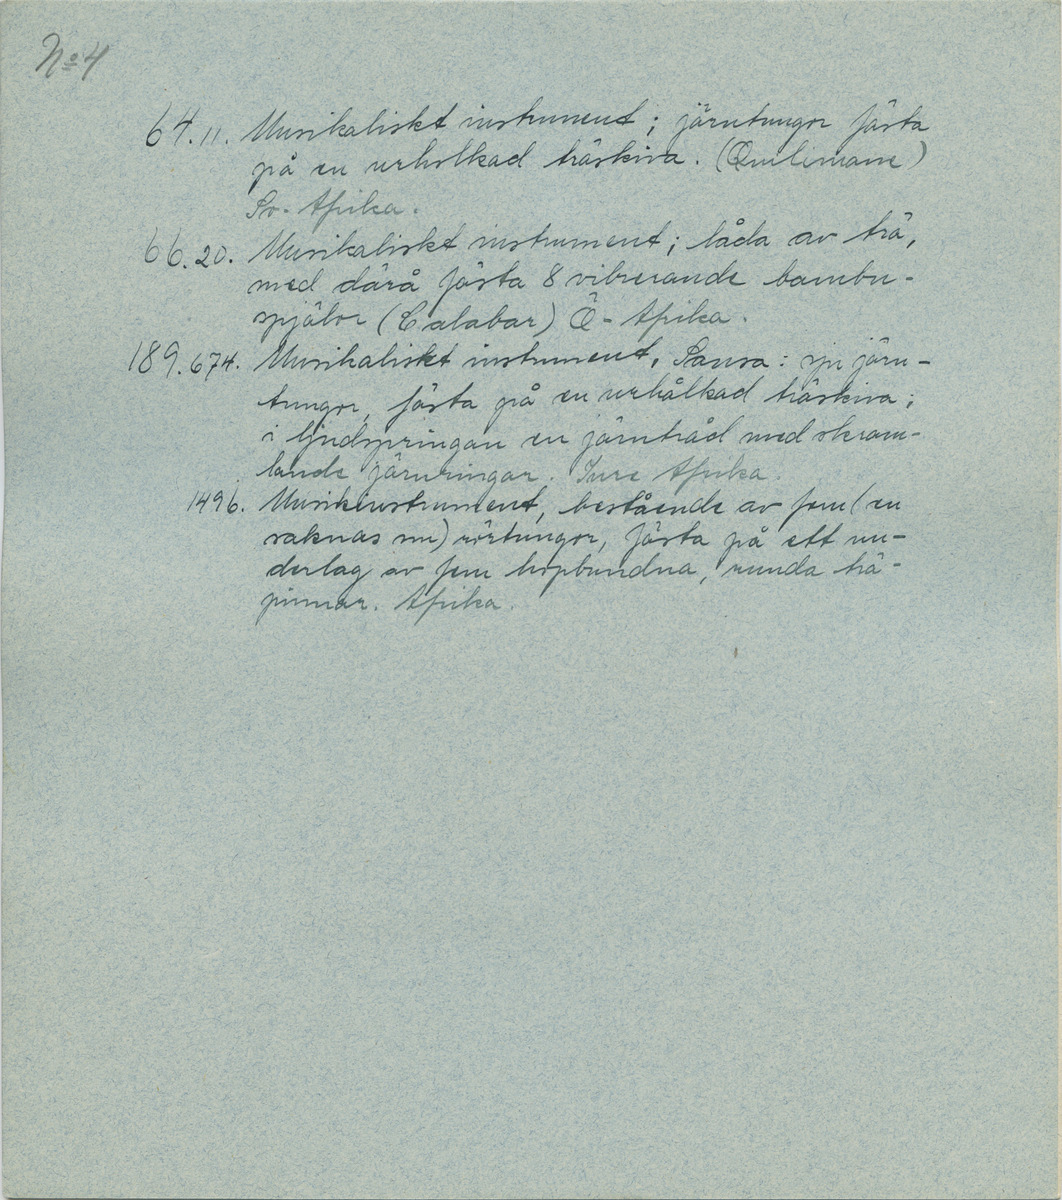 No 4
64.11. Musikaliskt instrument; järntungor fästa
på en urholkad träskiva. (Quilimane)
Sv. Afrika.
66.20. Musikaliskt instrument; låda av trä,
med därå fästa 8 vibrerande bambu-
spjälor (Calabar) Ö- Afrika.
189.674. Musikaliskt instrument, Sansa: sju järn-
tungor, fästa på en urhålkad träskiva;
i ljudspringan en järntråd med skram-
lande järnringar. Inre Afrika.
1496. Musikinstrument, bestående av fem (en
saknas nu) rörtungor, fästa på ett un-
derlag av fem hopbundna, runda trä-
pinnar. Afrika.